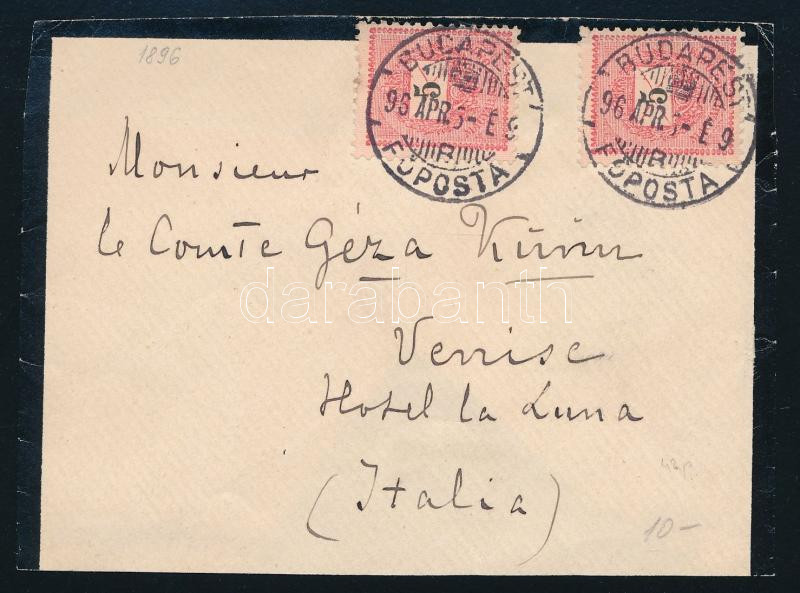 1896
BUDAPEST
5
96 APR. 5 - E 9
FŐPOSTA
BUDAPEST
5
96 APR. 5 - E 9
FŐPOSTA
Monsieur
le Comte Géza Kuun
darabanth
Vennise
Hotel la Luna
(Italia)
10-